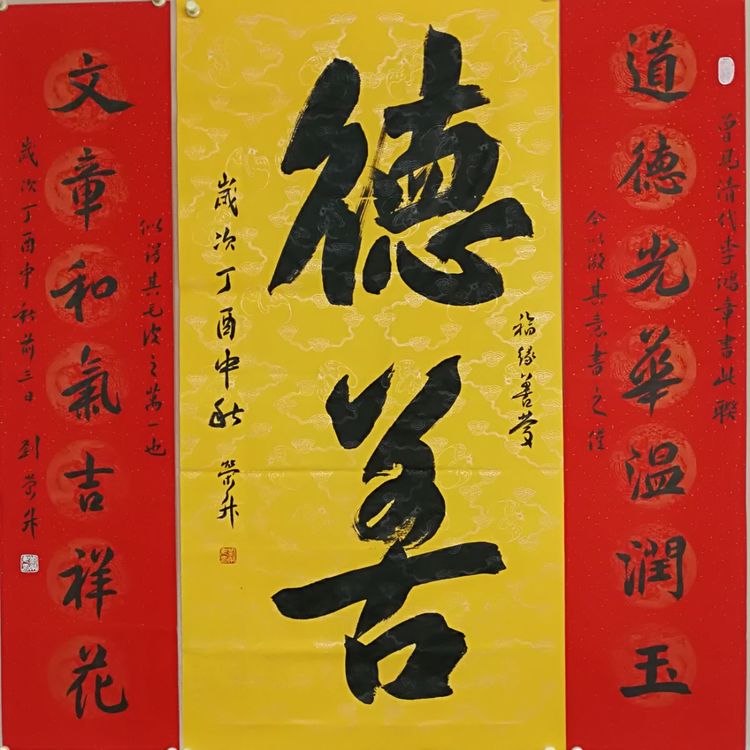 道德光華温潤玉
曾見清代李鴻章書此聯
今以擬其意書之僅
德善
福緣善慶
歲次丁酉中秋 榮升
文章和氣吉祥花
似得其毛皮之萬一也
歲次丁酉中秋前三日 劉榮升